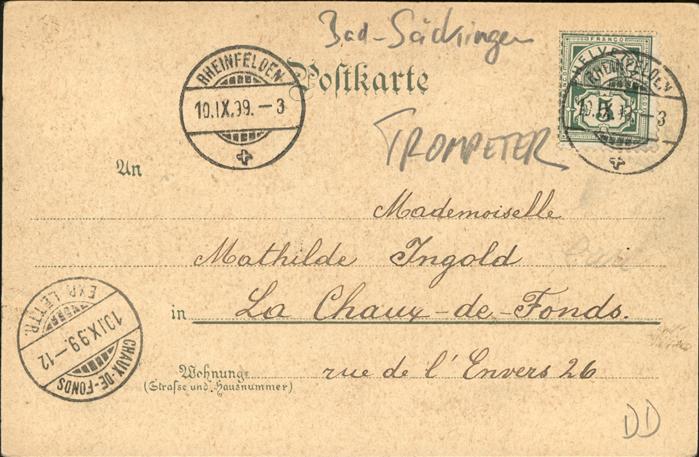 Bad-Säckingen
Postkarte
TROMPETER
RHEINFELDEN
10.IX.99.-3
FRANCO
HELVETIA
5
RHEINFELDEN
10.IX.99.-3
An
Mademoiselle
Mathilde Ingold
in La Chaux-de-Fonds.
Wohnung
(Strasse und Hausnummer)
rue de l'Envers 26
EXP. LETTR.
10.IX.99.-12
CHAUX-DE-FONDS
DD